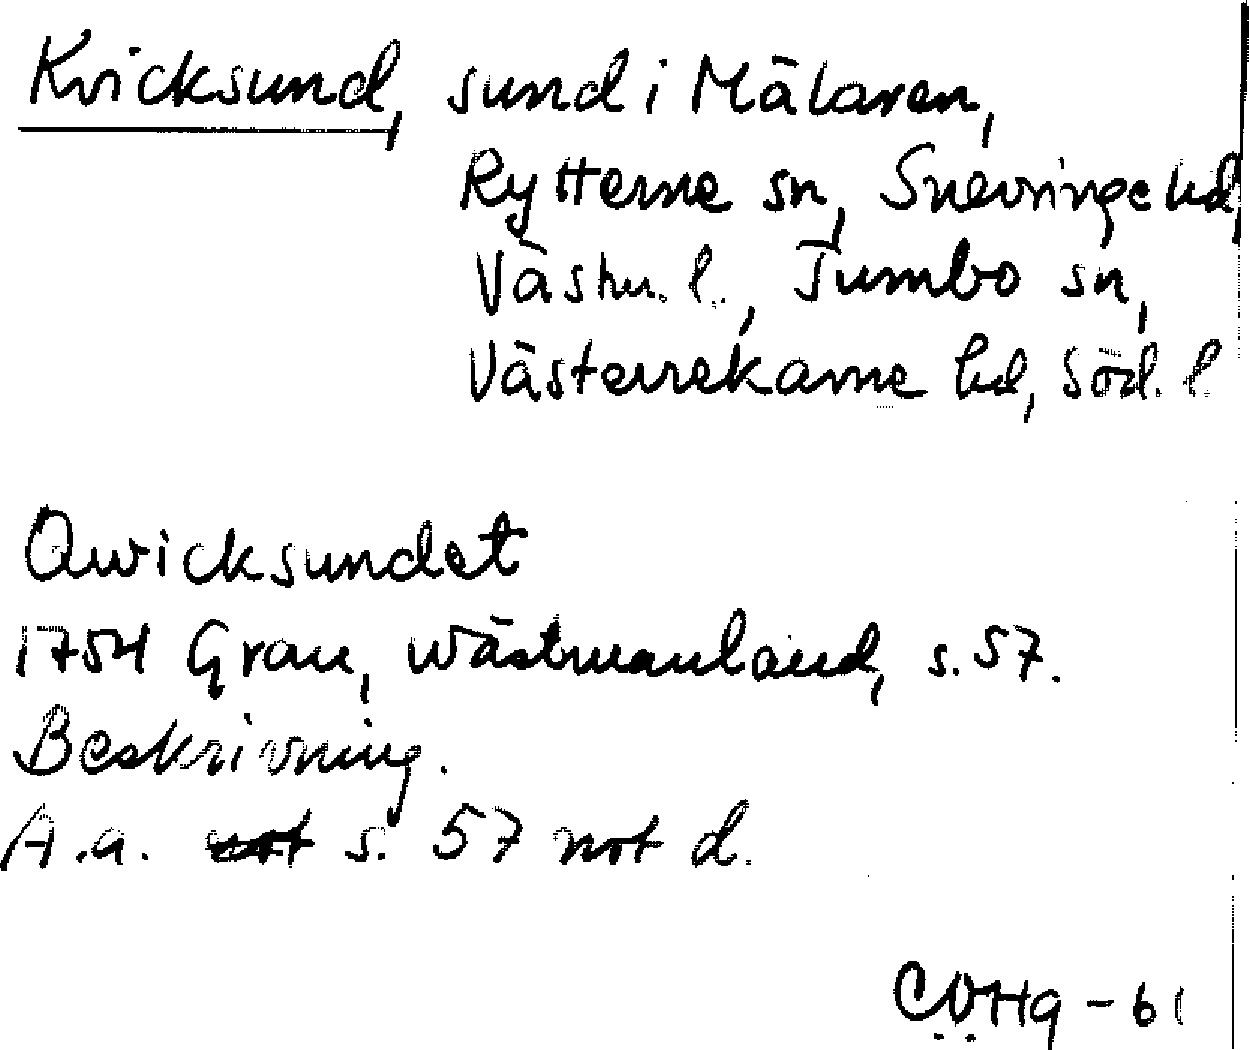 Kvicksund, sund i Mälaren,
Rytterne sn, Snevringe hd,
Västm. l., Tumbo sn,
Västerrekarne hd, Söd. l.
Qwicksundet
1754 Grau, Wästmanland, s. 57.
Beskrivning.
A.a. s. 57 not d.
- 61